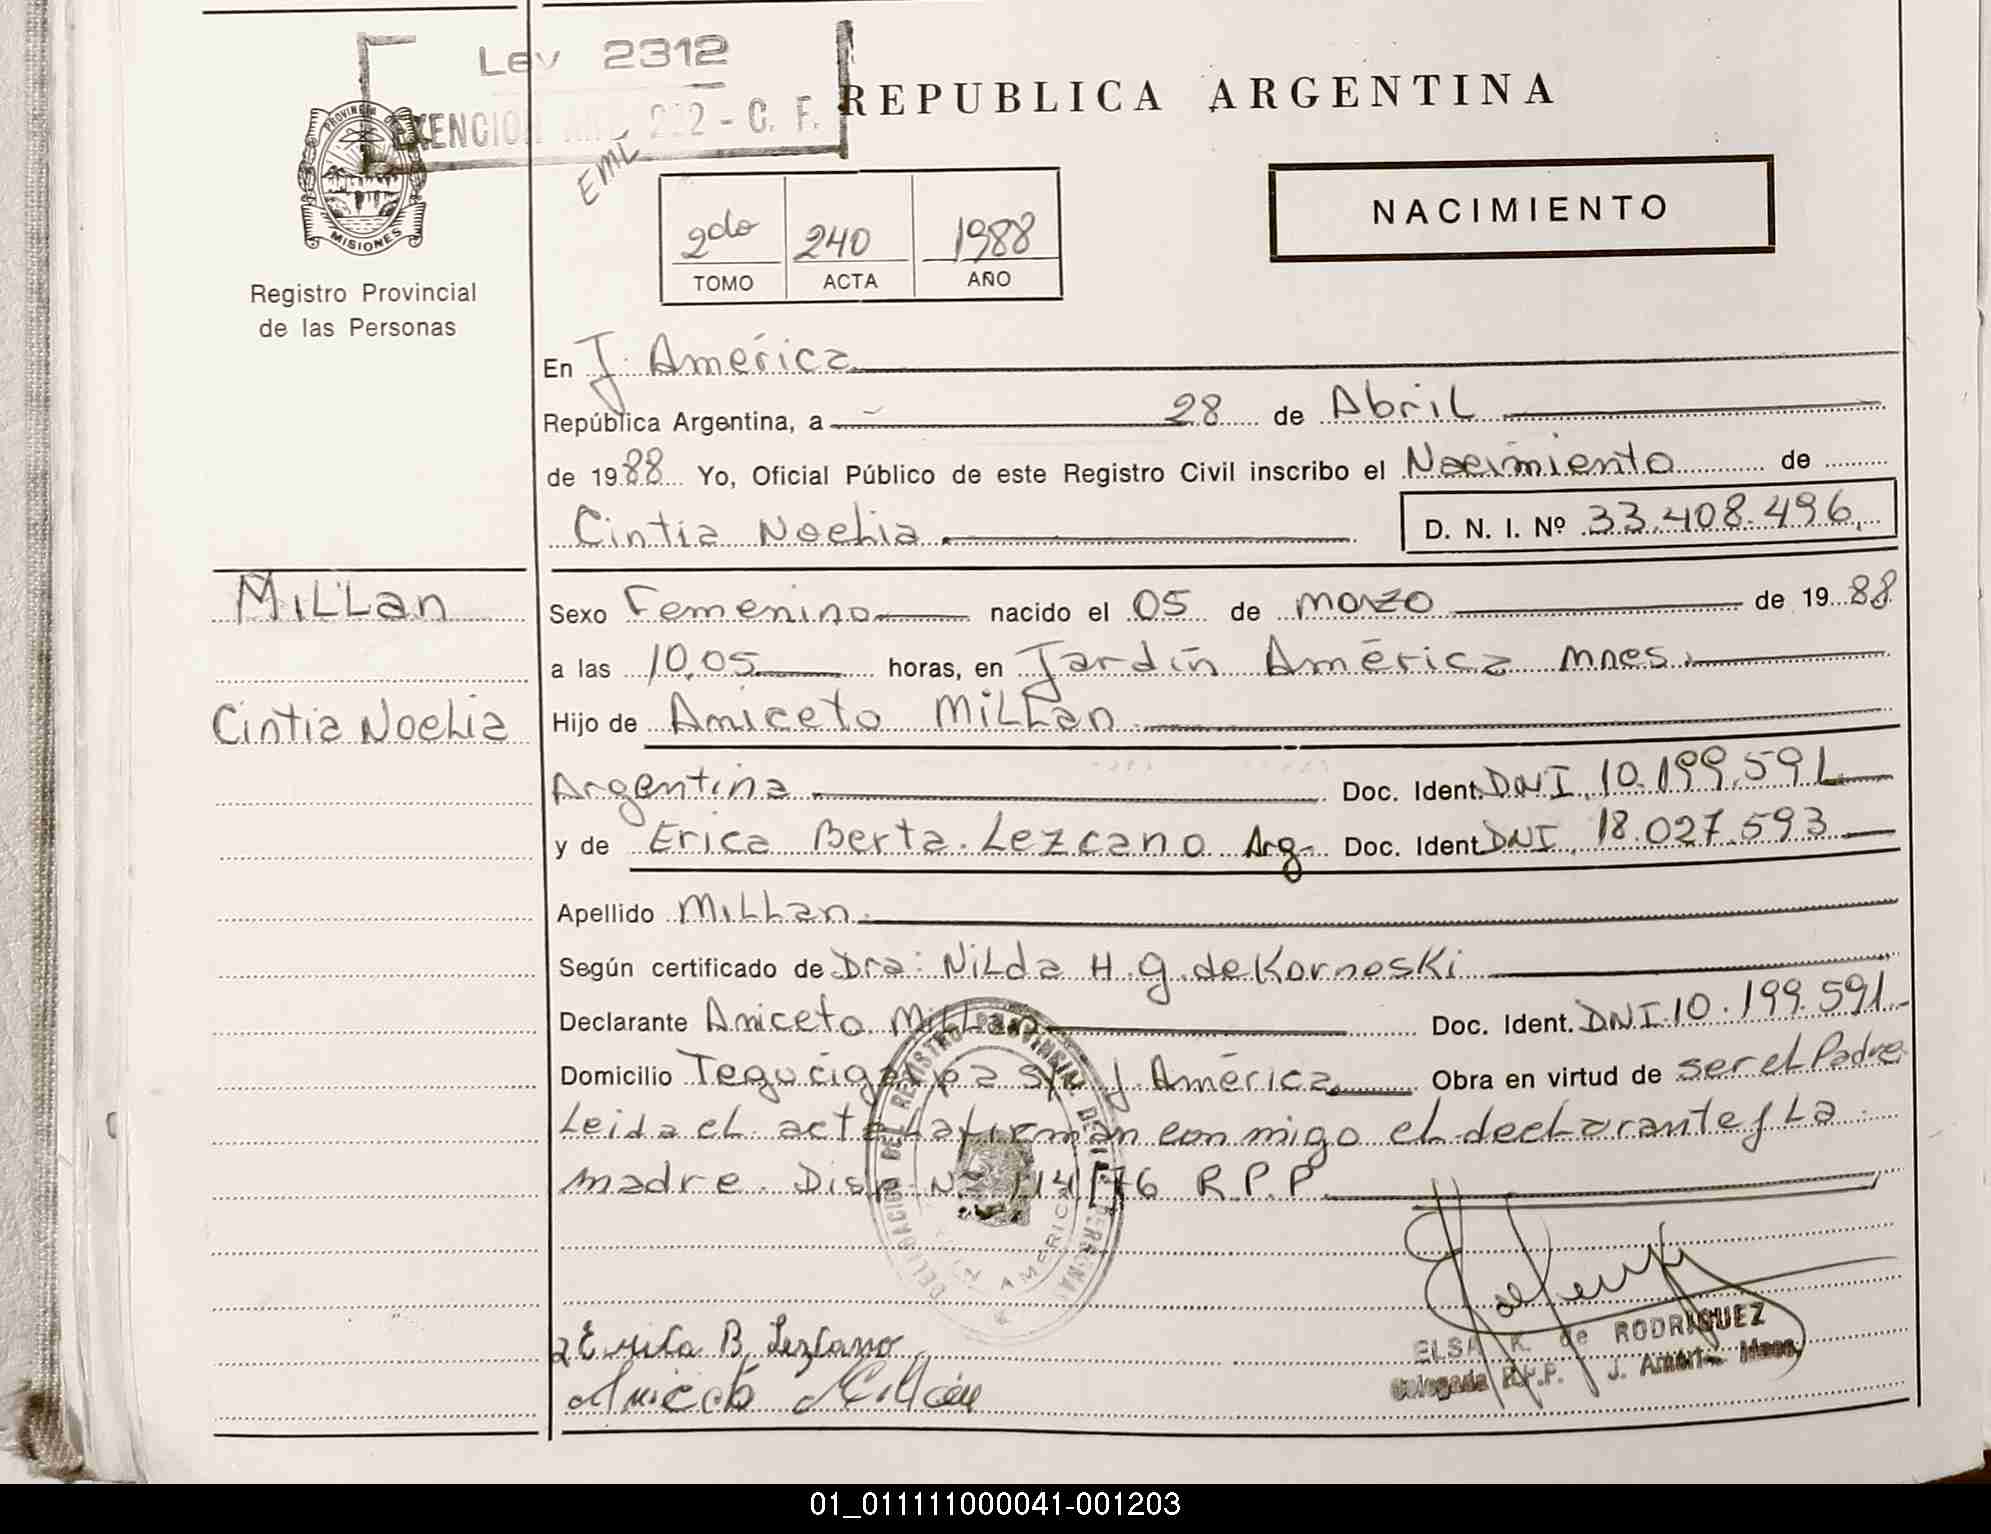 Ley 2312
EXENCION ART. 222 - C. F.
REPUBLICA ARGENTINA
PROVINCIA DE
MISIONES
EMI
2do 240 1988
TOMO ACTA AÑO
NACIMIENTO
Registro Provincial
de las Personas
En J. América
República Argentina, a 28 de Abril
de 1988 Yo, Oficial Público de este Registro Civil inscribo el Nacimiento de
Cintia Noelia D. N. I. Nº 33.408.496
Millan
Sexo Femenino nacido el 05 de marzo de 1988
a las 10,05 horas, en Jardín América Mnes.
Cintia Noelia
Hijo de Aniceto Millan
Argentina Doc. Ident. DNI. 10.199.591
y de Erica Berta Lezcano Arg. Doc. Ident. DNI. 18.027.593
Apellido Millan
Según certificado de Dra: Nilda H. G. de Kornoski
Declarante Aniceto Millan Doc. Ident. DNI 10.199.591
Domicilio Tegucigalpa s/n J. América Obra en virtud de ser el Padre
Leida el acta La firman conmigo el declarante y La
madre. Disp. Nº 114/76 R.P.P.
DELEGACION DEL REGISTRO PROVINCIAL DE LAS PERSONAS
AMERICA
Erica B. Lezcano
Aniceto Millán
ELSA K. de RODRIGUEZ
Delegada R.P.P. J. América Mnes.
01_011111000041-001203